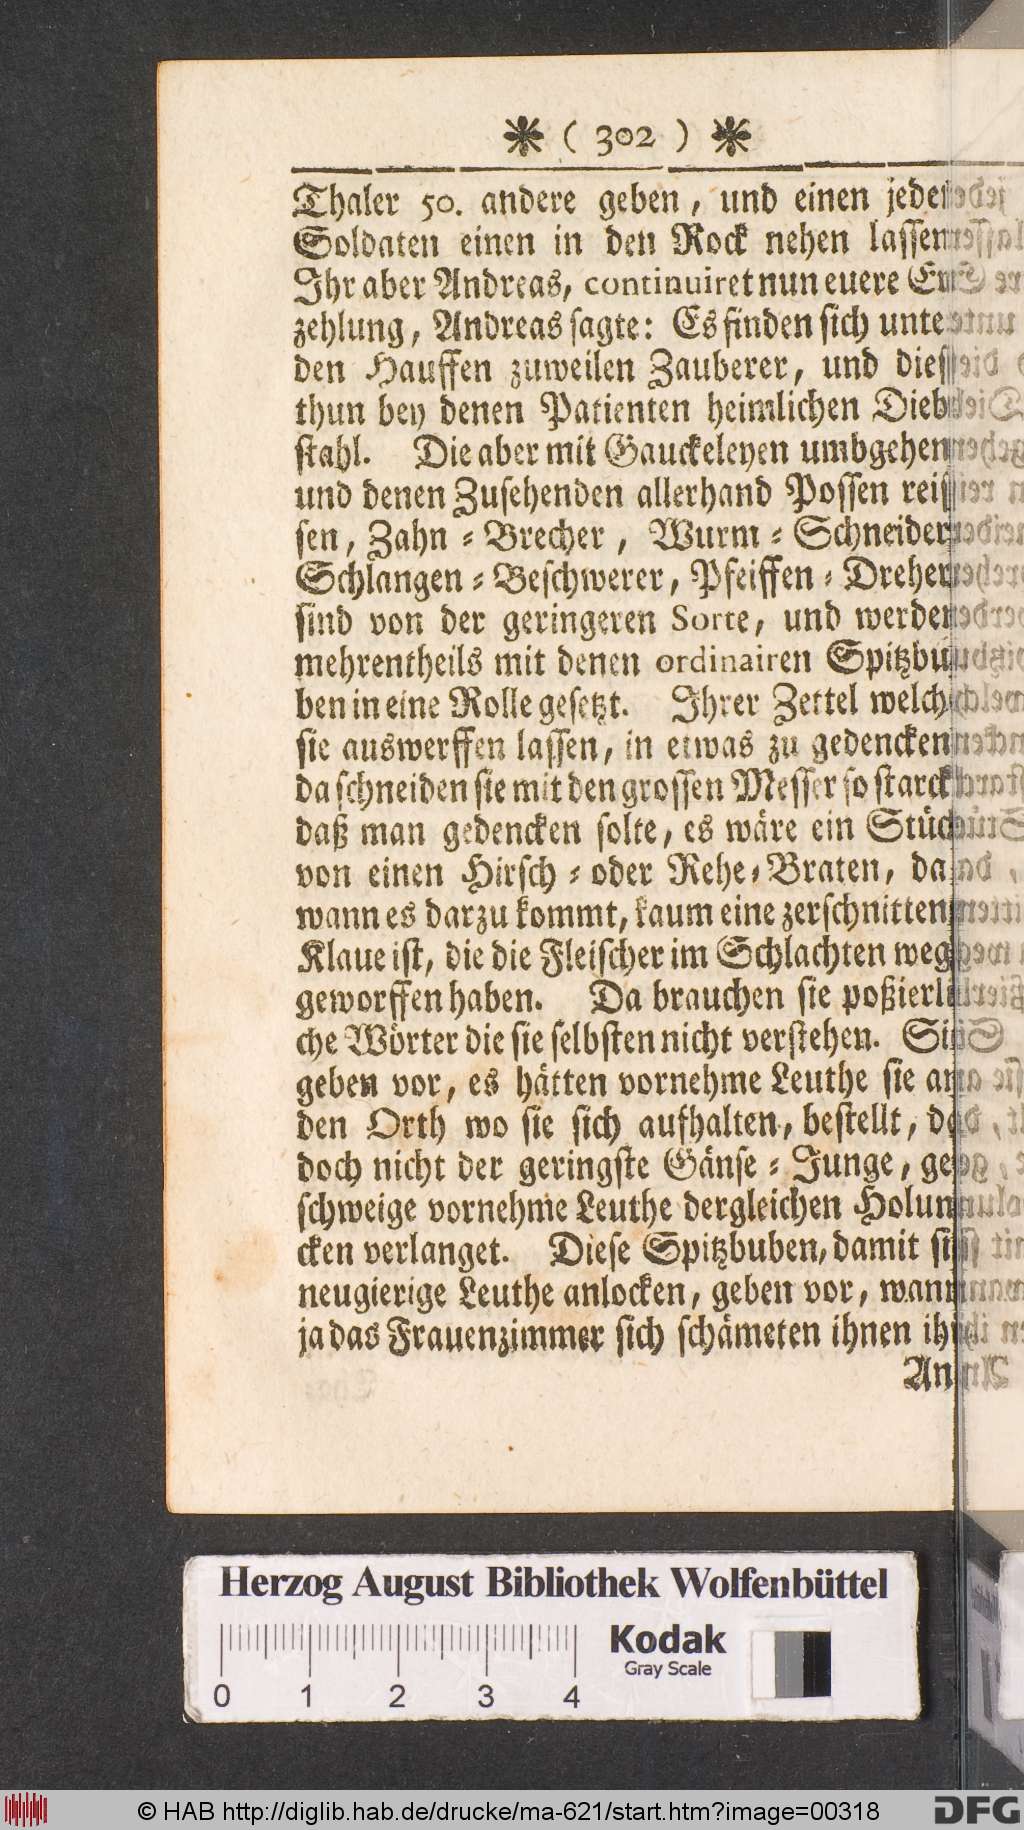 ❋ ( 302 ) ❋
Thaler 50. andere geben, und einen jeden
Soldaten einen in den Rock nehen lassen.
Ihr aber Andreas, continuiret nun euere Er⸗
zehlung, Andreas sagte: Es finden sich unter
den Hauffen zuweilen Zauberer, und diese
thun bey denen Patienten heimlichen Dieb⸗
stahl. Die aber mit Gauckeleyen umbgehen
und denen Zusehenden allerhand Possen reis⸗
sen, Zahn⸗Brecher, Wurm⸗Schneider
Schlangen⸗Beschwerer, Pfeiffen⸗Dreher
sind von der geringeren Sorte, und werden
mehrentheils mit denen ordinairen Spitzbu⸗
ben in eine Rolle gesetzt. Ihrer Zettel welche
sie auswerffen lassen, in etwas zu gedencken
da schneiden sie mit den grossen Messer so starck
daß man gedencken solte, es wäre ein Stück
von einen Hirsch⸗oder Rehe⸗Braten, da
wann es darzu kommt, kaum eine zerschnitten
Klaue ist, die die Fleischer im Schlachten weg
geworffen haben. Da brauchen sie poßierli⸗
che Wörter die sie selbsten nicht verstehen. Sie
geben vor, es hätten vornehme Leuthe sie an
den Orth wo sie sich aufhalten, bestellt, da
doch nicht der geringste Gänse⸗Junge, ge⸗
schweige vornehme Leuthe dergleichen Holun⸗
cken verlanget. Diese Spitzbuben, damit sie
neugierige Leuthe anlocken, geben vor, wann
ja das Frauenzimmer sich schämeten ihnen ihr
An⸗
Herzog August Bibliothek Wolfenbüttel
Kodak
Gray Scale
0 1 2 3 4
© HAB http://diglib.hab.de/drucke/ma-621/start.htm?image=00318
DFG